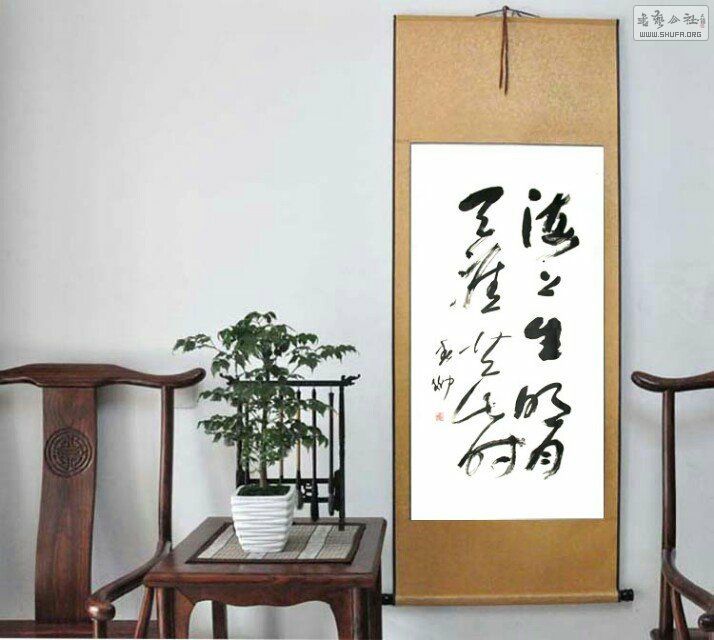 海上生明月
天涯共此时
书艺公社
WWW.SHUFA.ORG